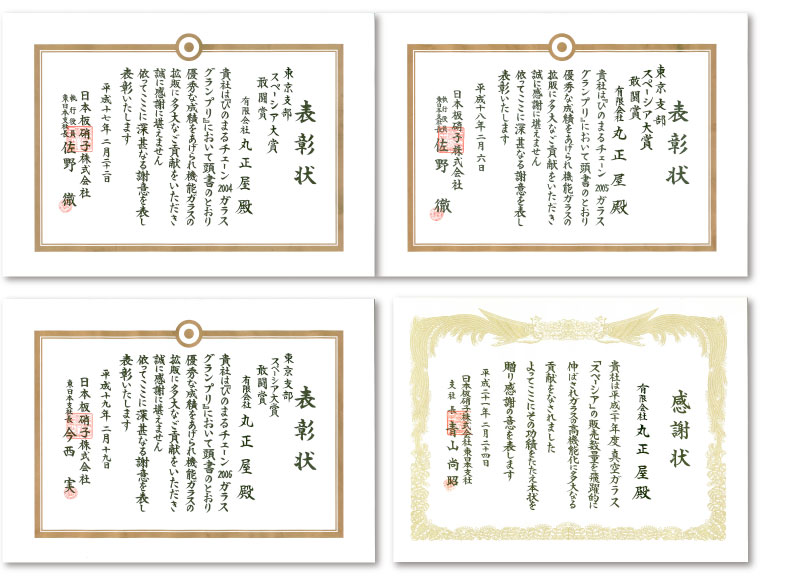 表彰状
東京支部
スペーシア大賞
敢闘賞
有限会社 丸正屋 殿
貴社は『ひのまるチェーン2004ガラス
グランプリ』において頭書のとおり
優秀な成績をあげられ機能ガラスの
拡販に多大なご貢献をいただき
誠に感謝に堪えません
依ってここに深甚なる謝意を表し
表彰いたします
平成十七年 二月二十二日
日本板硝子株式会社
執行役員
東日本支社長 佐野 徹
表彰状
東京支部
スペーシア大賞
敢闘賞
有限会社 丸正屋 殿
貴社は『ひのまるチェーン2005ガラス
グランプリ』において頭書のとおり
優秀な成績をあげられ機能ガラスの
拡販に多大なご貢献をいただき
誠に感謝に堪えません
依ってここに深甚なる謝意を表し
表彰いたします
平成十八年 二月 六日
日本板硝子株式会社
執行役員
東日本支社長 佐野 徹
表彰状
東京支部
スペーシア大賞
敢闘賞
有限会社 丸正屋 殿
貴社は『ひのまるチェーン2006ガラス
グランプリ』において頭書のとおり
優秀な成績をあげられ機能ガラスの
拡販に多大なご貢献をいただき
誠に感謝に堪えません
依ってここに深甚なる謝意を表し
表彰いたします
平成十九年 二月十九日
日本板硝子株式会社
東日本支社長 今西 実
感謝状
有限会社 丸正屋 殿
貴社は平成二十年度、真空ガラス
「スペーシア」の販売数量を飛躍的に
伸ばされガラスの高機能化に多大なる
貢献をなされました
よってここにその功績をたたえ本状を
贈り感謝の意を表します
平成二十一年 二月二十四日
日本板硝子株式会社 東日本支社
支社長 青山 尚昭